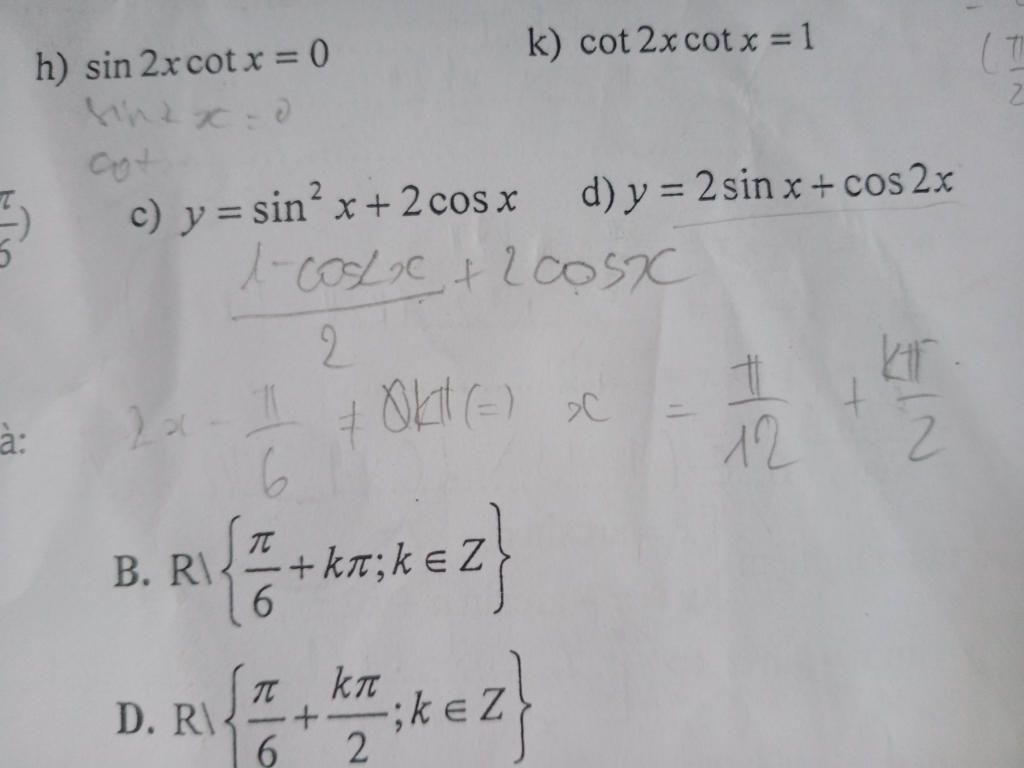 h) sin 2x cot x = 0
k) cot 2x cot x = 1
(π/2
sin 2x = 0
cot
π/6)
c) y = sin² x + 2 cos x
d) y = 2 sin x + cos 2x
(1 - cos2x)/2 + 2cosx
2x - π/6 ≠ kπ (=) x = π/12 + kπ/2
à:
B. R\{π/6 + kπ; k ∈ Z}
D. R\{π/6 + kπ/2; k ∈ Z}